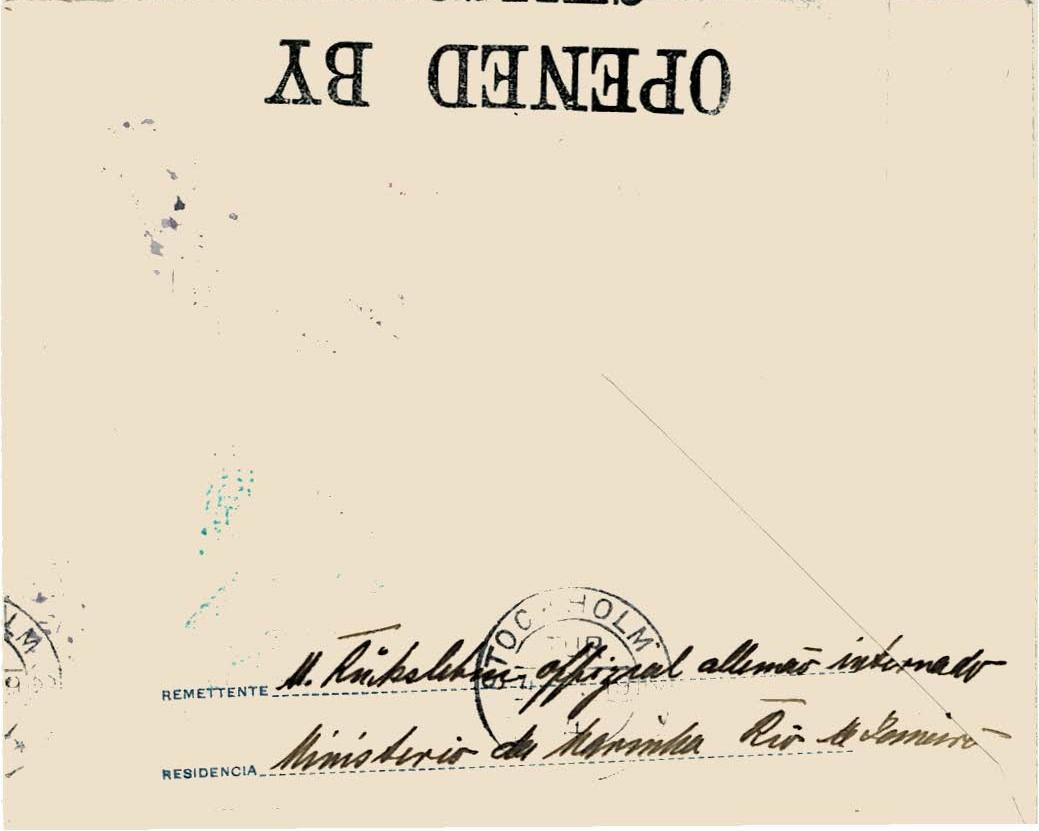 OPENED BY
STOCKHOLM
REMETTENTE M. official allemão internado
RESIDENCIA Ministerio da Marinha Rio de Janeiro
LM